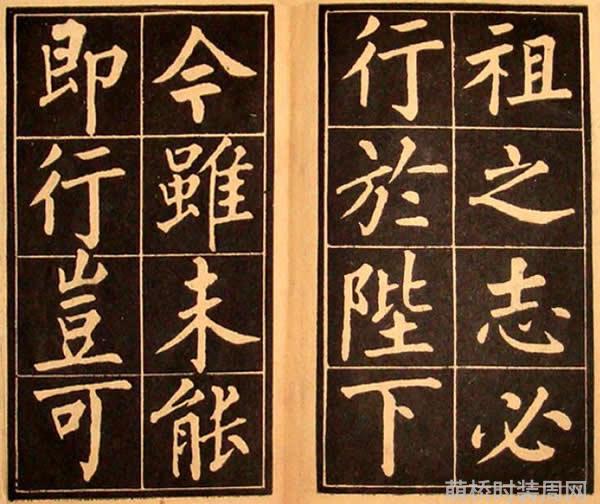 祖之志必
行於陛下
今雖未能
即行豈可
萌桥时装周网